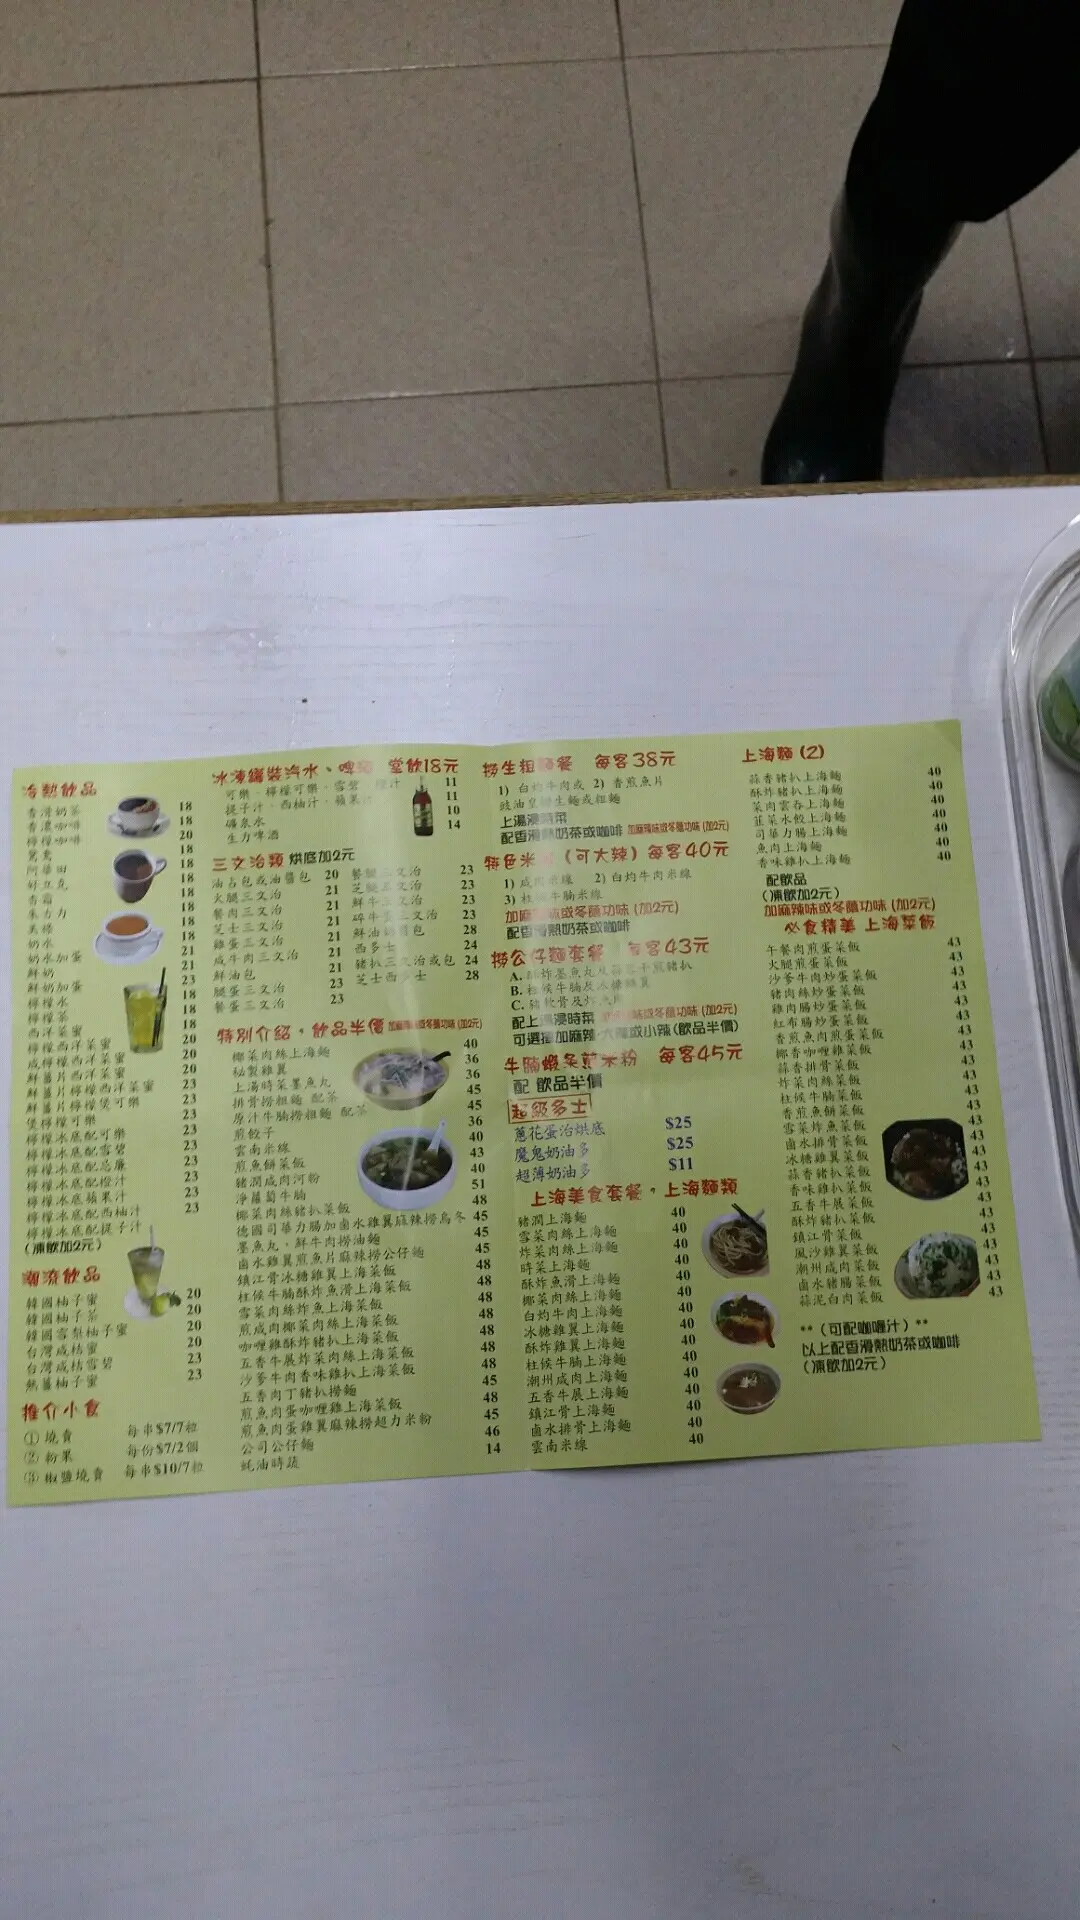 冷熱飲品
香滑奶茶 18
香濃咖啡 18
檸檬咖啡 20
鴛鴦 18
阿華田 18
好立克 18
杏霜 18
朱古力 18
美祿 18
奶水 18
奶水加蛋 21
鮮奶 21
鮮奶加蛋 23
檸檬水 18
檸檬茶 18
西洋菜蜜 18
檸檬西洋菜蜜 20
咸檸檬西洋菜蜜 20
鮮薑片西洋菜蜜 20
鮮薑片檸檬西洋菜蜜 23
鮮薑片檸檬煲可樂 23
煲檸檬可樂 23
檸檬冰底配可樂 23
檸檬冰底配雪碧 23
檸檬冰底配忌廉 23
檸檬冰底配橙汁 23
檸檬冰底蘋果汁 23
檸檬冰底配西柚汁 23
檸檬冰底配提子汁
(凍飲加2元)
潮流飲品
韓國柚子蜜 20
韓國柚子茶 20
韓國雪梨柚子蜜 20
台灣咸桔蜜 20
台灣咸桔雪碧 23
熱薑柚子蜜 23
推介小食
① 燒賣 每串$7/7粒
② 粉果 每份$7/2個
③ 椒鹽燒賣 每串$10/7粒
冰凍罐裝汽水、啤酒 堂飲18元
可樂．檸檬可樂．雪碧 橙汁 11
提子汁．西柚汁．蘋果汁 11
礦泉水 10
生力啤酒 14
三文治類 烘底加2元
油占包或油醬包 20
火腿三文治 21
餐肉三文治 21
芝士三文治 21
雞蛋三文治 21
咸牛肉三文治 21
鮮油包 21
腿蛋三文治 23
餐蛋三文治 23
餐腿三文治 23
芝腿三文治 23
鮮牛三文治 23
碎牛蛋三文治 23
鮮油奶醬包 28
西多士 24
豬扒三文治或包 24
芝士西多士 28
特別介紹，飲品半價 加麻辣味或冬蔭功味(加2元)
椰菜肉絲上海麵 40
秘製雞翼 36
上湯時菜墨魚丸 36
排骨撈粗麵 配茶 45
原汁牛腩撈粗麵 配茶 45
煎餃子 36
雲南米線 40
煎魚餅菜飯 43
豬潤咸肉河粉 40
淨蘿蔔牛腩 51
椰菜肉絲豬扒菜飯 48
德國司華力腸加鹵水雞翼麻辣撈烏冬 45
墨魚丸，鮮牛肉撈油麵 45
鹵水雞翼煎魚片麻辣撈公仔麵 45
鎮江骨冰糖雞翼上海菜飯 48
柱候牛腩酥炸魚滑上海菜飯 48
雪菜肉絲炸魚上海菜飯 48
煎咸肉椰菜肉絲上海菜飯 48
咖喱雞酥炸豬扒上海菜飯 48
五香牛展炸菜肉絲上海菜飯 48
沙爹牛肉香味雞扒上海菜飯 48
五香肉丁豬扒撈麵 45
煎魚肉蛋咖喱雞上海菜飯 48
煎魚肉蛋雞翼麻辣撈超力米粉 45
公司公仔麵 46
蚝油時蔬 14
撈生粗麵餐 每客38元
1) 白灼牛肉或 2) 香煎魚片
豉油皇撈生麵或粗麵
上湯浸時菜
配香滑熱奶茶或咖啡 加麻辣味或冬蔭功味(加2元)
特色米線 (可大辣) 每客40元
1) 咸肉米線 2) 白灼牛肉米線
3) 柱候牛腩米線
加麻辣味或冬蔭功味 (加2元)
配香滑熱奶茶或咖啡
撈公仔麵套餐 每客43元
A. 酥炸墨魚丸及蒜蓉干煎豬扒
B. 柱候牛腩及冰糖雞翼
C. 豬軟骨及炸魚片
配上湯浸時菜 加麻辣味或冬蔭功味 (加2元)
可選擇加麻辣，大辣或小辣(飲品半價)
牛腩蝦朵煎米粉 每客45元
配 飲品半價
超級多士
蔥花蛋治烘底 $25
魔鬼奶油多 $25
超薄奶油多 $11
上海美食套餐，上海麵類
豬潤上海麵 40
雪菜肉絲上海麵 40
炸菜肉絲上海麵 40
時菜上海麵 40
酥炸魚滑上海麵 40
椰菜肉絲上海麵 40
白灼牛肉上海麵 40
冰糖雞翼上海麵 40
酥炸雞翼上海麵 40
柱候牛腩上海麵 40
潮州咸肉上海麵 40
五香牛展上海麵 40
鎮江骨上海麵 40
鹵水排骨上海麵 40
雲南米線 40
上海麵 (2)
蒜香豬扒上海麵 40
酥炸豬扒上海麵 40
菜肉雲吞上海麵 40
韮菜水餃上海麵 40
司華力腸上海麵 40
魚肉上海麵 40
香味雞扒上海麵 40
配飲品
(凍飲加2元)
加麻辣味或冬蔭功味 (加2元)
必食精美 上海菜飯
午餐肉煎蛋菜飯 43
火腿煎蛋菜飯 43
沙爹牛肉炒蛋菜飯 43
豬肉絲炒蛋菜飯 43
雞肉腸炒蛋菜飯 43
紅布腸炒蛋菜飯 43
香煎魚肉煎蛋菜飯 43
椰香咖喱雞菜飯 43
蒜香排骨菜飯 43
炸菜肉絲菜飯 43
柱候牛腩菜飯 43
香煎魚餅菜飯 43
雪菜炸魚菜飯 43
鹵水排骨菜飯 43
冰糖雞翼菜飯 43
蒜香豬扒菜飯 43
香味雞扒菜飯 43
五香牛展菜飯 43
酥炸豬扒菜飯 43
鎮江骨菜飯 43
風沙雞翼菜飯 43
潮州咸肉菜飯 43
鹵水豬腸菜飯 43
蒜泥白肉菜飯 43
**（可配咖喱汁）**
以上配香滑熱奶茶或咖啡
(凍飲加2元)